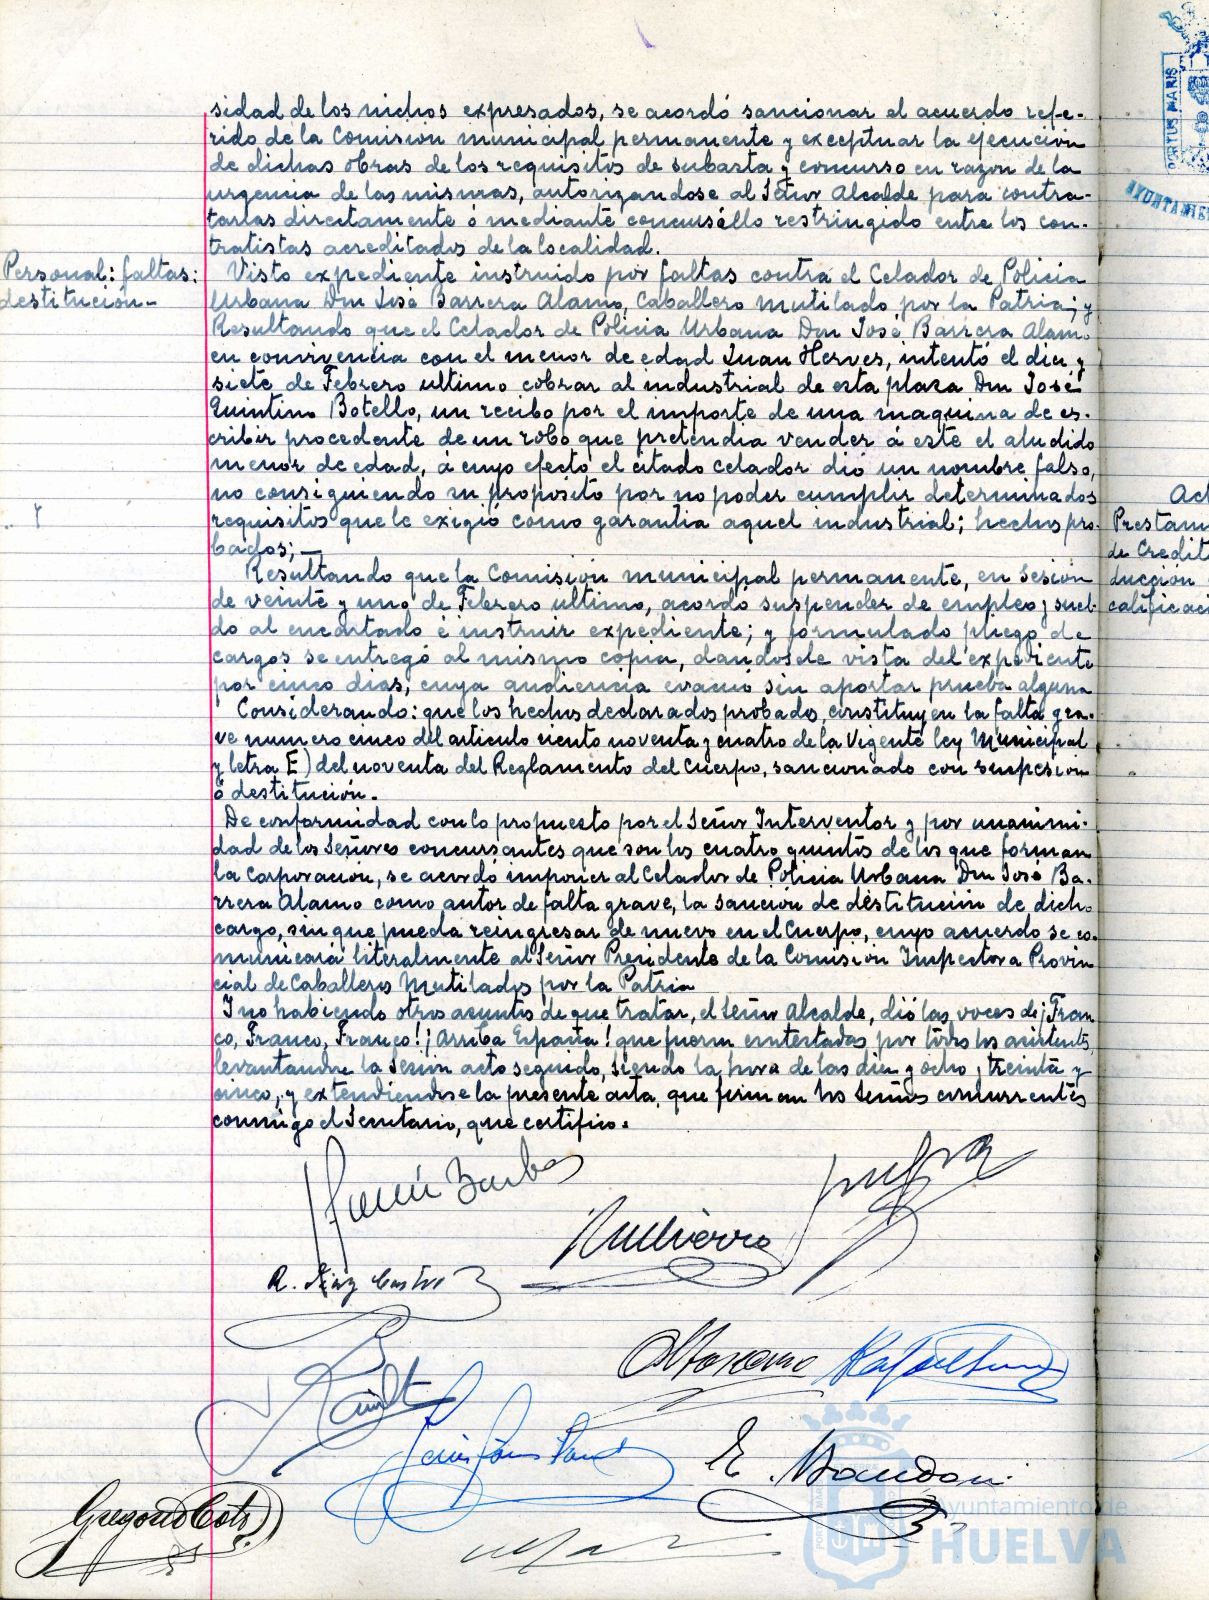 sidad de los nichos expresados, se acordó sancionar el acuerdo refe-
rido de la Comisión municipal permanente y exceptuar la ejecución
de dichas obras de los requisitos de subasta y concurso en razon de la
urgencia de las mismas, autorizandose al Señor Alcalde para contra-
tarlas directamente ó mediante concursillo restringido entre los con-
tratistas acreditados de la localidad.
Personal: faltas:
destitución.-
Visto expediente instruido por faltas contra el Celador de Policia
Urbana Don José Barrera Alamo, Caballero mutilado por la Patria; y
Resultando que el Celador de Policia Urbana Don José Barrera Alamo
en convivencia con el menor de edad Juan Herves, intentó el diez y
siete de Febrero ultimo cobrar al industrial de esta plaza Don José
Quintino Botello, un recibo por el importe de una maquina de es-
cribir procedente de un robo que pretendia vender á este el aludido
menor de edad, á cuyo efecto el citado celador dió un nombre falso,
no consiguiendo su proposito por no poder cumplir determinados
requisitos que le exigió como garantia aquel industrial; hechos pro-
bados;—
Resultando que la Comisión municipal permanente, en sesión
de veinte y uno de Febrero ultimo, acordó suspender de empleo y suel-
do al encartado é instruir expediente; y formulado pliego de
cargos se entregó al mismo copia, dandosele vista del expediente
por cinco dias, cuya audiencia evacuó sin aportar prueba alguna
Considerando: que los hechos declarados probados, constituyen la falta gra-
ve numero cinco del articulo ciento noventa y cuatro de la Vigente ley Municipal
y letra E) del noventa del Reglamento del Cuerpo, sancionado con suspesion
ó destitución.
De conformidad con lo propuesto por el Señor Interventor y por unanimi-
dad de los Señores concursantes que son los cuatro quintos de los que forman
la Corporación, se acordó imponer al Celador de Policia Urbana Don José Ba-
rrera Alamo como autor de falta grave, la sanción de destitución de dicho
cargo, sin que pueda reingresar de nuevo en el Cuerpo, cuyo acuerdo se co-
municará literalmente al Señor Presidente de la Comisión Inspectora Provin
cial de Caballeros Mutilados por la Patria
Y no habiendo otros asuntos de que tratar, el Señor Alcalde, dió las voces de ¡Fran
co, Franco, Franco! ¡Arriba España! que fueron contestadas por todos los asistentes,
levantandose la sesión acto seguido, siendo la hora de las diez y ocho, treinta y
cinco, y extendiendose la presente acta, que firman los Señores concurrentes
conmigo el Secretario, que certifico.
A. Diaz Castro
Gregorio Coto
Ayuntamiento de
HUELVA
PORTUS MARIS
AYUNTAMIE
Act
Prestam
de Credit
ducción
calificaci